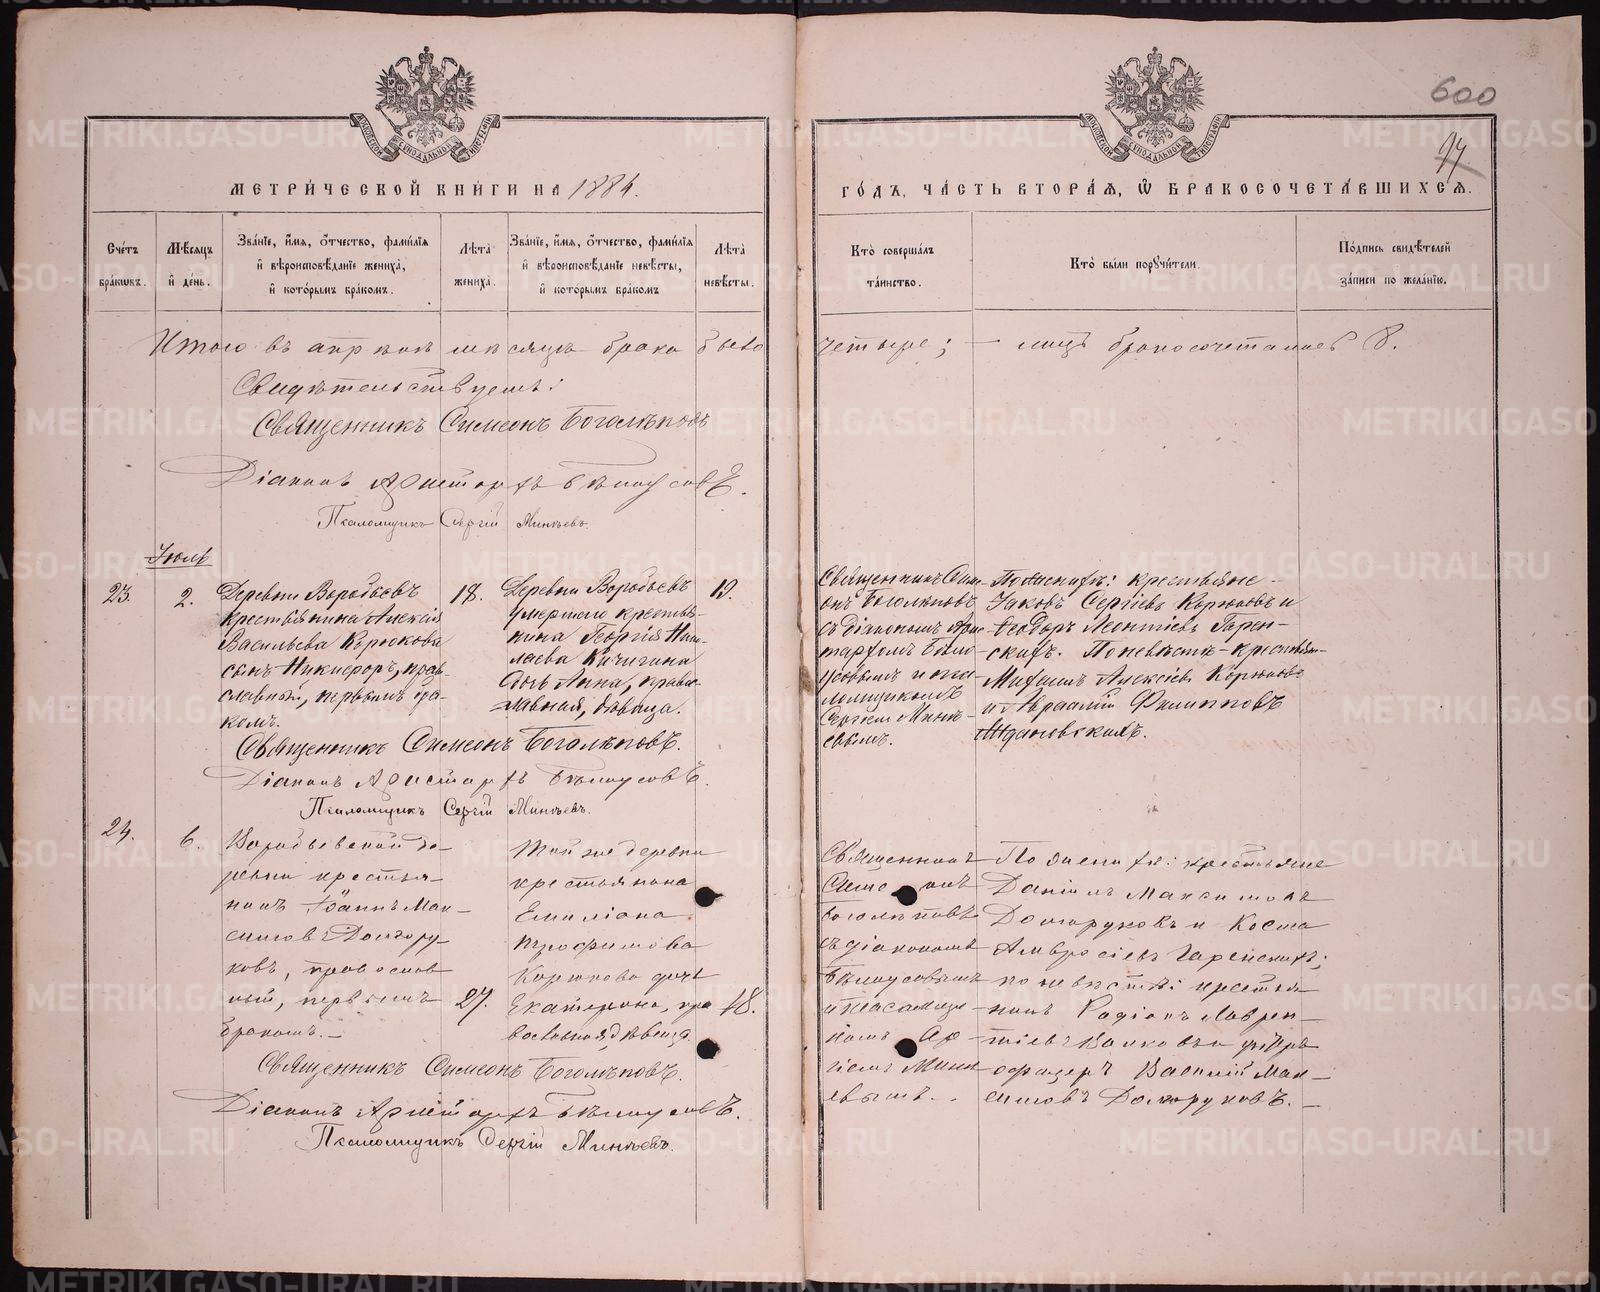 600
97
МЕТРИ́ЧЕСКОЙ КНИ́ГИ НА 1884.
ГО́ДЪ, ЧА́СТЬ ВТОРА́Ѧ, Ѽ БРАКОСОЧЕТА́ВШИХСѦ.
Сче́тъ бра́кѡвъ.
Мѣ́сѧцъ и҆ де́нь.
Зва́нїе, и҆́мѧ, ѻ҆́тчество, фами́лїѧ и҆ вѣроисповѣ́данїе жениха̀, и҆ кото́рымъ бра́комъ.
Лѣ́та жениха̀.
Зва́нїе, и҆́мѧ, ѻ҆́тчество, фами́лїѧ и҆ вѣроисповѣ́данїе невѣ́сты, и҆ кото́рымъ бра́комъ
Лѣ́та невѣ́сты.
Кто̀ соверша́лъ та́инство.
Кто̀ бы́ли порꙋчи́тели.
По́дпись свидѣ́телей за́писи по жела́нїю.
Итого въ апрѣлѣ мѣсяцѣ брака было четыре; — лицъ бракосочеталось 8.
Свидѣтельствуемъ:
Священникъ Симеонъ Боголѣповъ
Діаконъ Аристархъ Бѣлоусовъ.
Псаломщикъ Сергій Минѣевъ.
Іюль
23.
2.
Деревни Воробьевъ
крестьянина Алексія
Васильева Карюкова
сынъ Никифоръ, прав-
славный, первымъ бра-
комъ.
18.
Деревни Воробьевъ
умершаго крестья-
нина Георгія Ни-
лаева Кичигина
дочь Анна, право-
славная, дѣвица.
19.
Священникъ Сим-
онъ Боголѣповъ
съ діакономъ Арис-
тархомъ Бѣло-
усовымъ и пса-
ломщикомъ
Сергіем Минѣ-
евымъ.
По женихѣ: крестьяне
Іаковъ Сергіевъ Корюковъ и
Ѳеодоръ Леонтіевъ Гарен-
скихъ. По невѣстѣ - крестьян-
Михаилъ Алексіевъ Корюковъ
и Авраамій Филипповъ
Ждановскихъ.
Священникъ Симеонъ Боголѣповъ.
Діаконъ Аристархъ Бѣлоусовъ.
Псаломщикъ Сергій Минѣевъ.
24.
6.
Воробьевской де-
ревни крестья-
нинъ Іоаннъ Мак-
симовъ Долгору-
ковъ, православ
ный, первымъ
бракомъ.-
27.
той же деревни
крестьянина
Емиліана
Трофимова
Корюкова дочь
Екатерина, пра
вославная, дѣвица.
18.
Священникъ
Симеонъ
Боголѣповъ
съ діакономъ
Бѣлоусовымъ
и псаломщи
комъ Сер
гіемъ Минѣ
евымъ.
По женихѣ: крестьяне
Даніилъ Максимовъ
Долгоруковъ и Косма
Амвросіевъ Гаренскихъ;
по невѣстѣ: крестья
нинъ Родіонъ Лаврен-
тіевъ Волковъ и унтеръ
офицеръ Василій Мак-
симовъ Долгоруковъ.-
Священникъ Симеонъ Боголѣповъ.
Діаконъ Аристархъ Бѣлоусовъ.
Псаломщикъ Сергій Минѣевъ.
METRIKI.GASO-URAL.RU